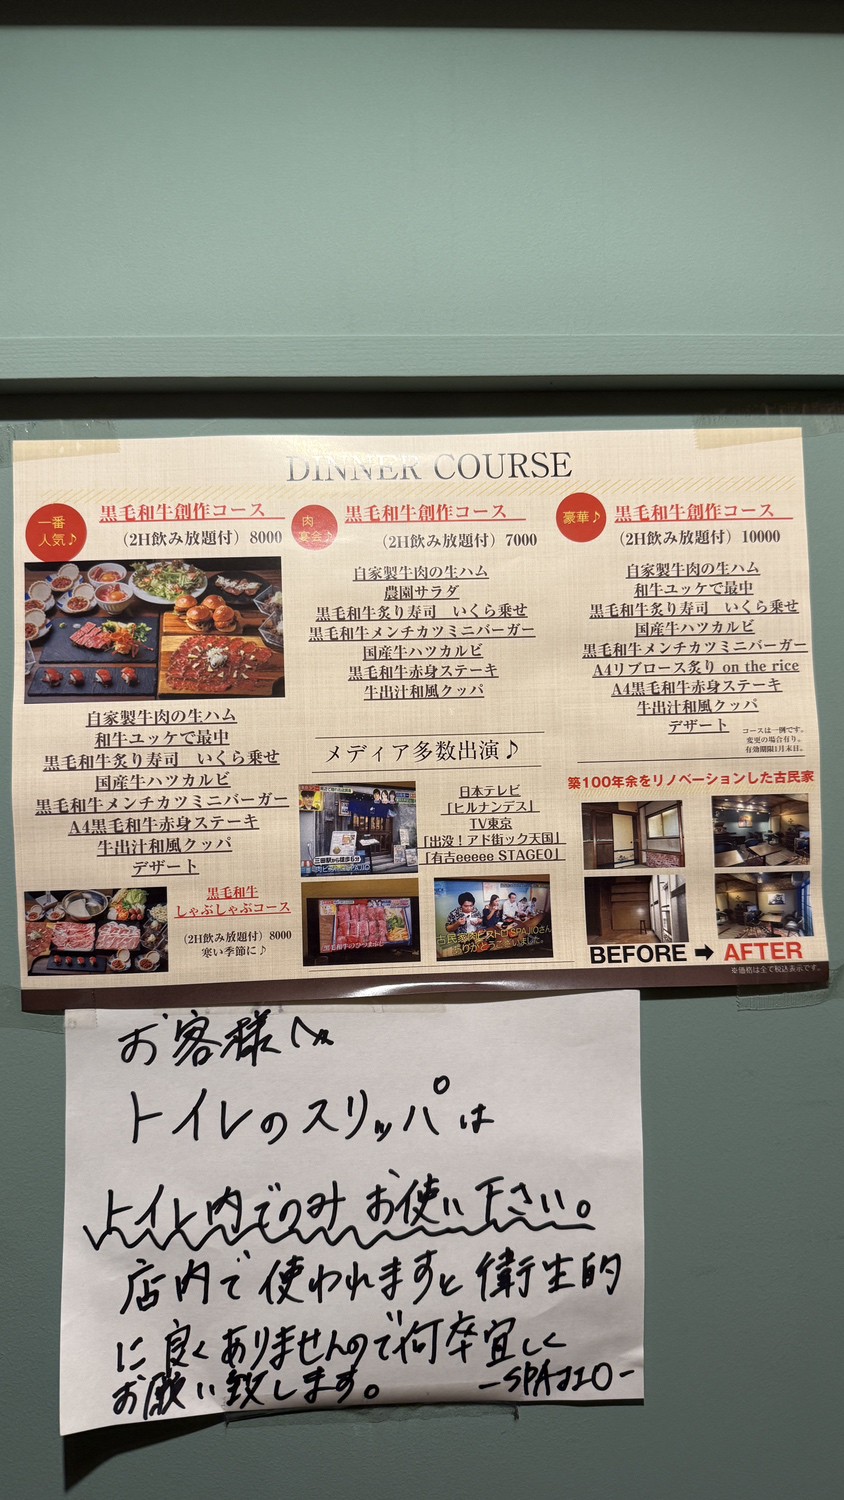 DINNER COURSE
一番
人気♪
黒毛和牛創作コース
(2H飲み放題付) 8000
自家製牛肉の生ハム
和牛ユッケで最中
黒毛和牛炙り寿司 いくら乗せ
国産牛ハツカルビ
黒毛和牛メンチカツミニバーガー
A4黒毛和牛赤身ステーキ
牛出汁和風クッパ
デザート
黒毛和牛
しゃぶしゃぶコース
(2H飲み放題付) 8000
寒い季節に♪
肉
宴会♪
黒毛和牛創作コース
(2H飲み放題付) 7000
自家製牛肉の生ハム
農園サラダ
黒毛和牛炙り寿司 いくら乗せ
黒毛和牛メンチカツミニバーガー
国産牛ハツカルビ
黒毛和牛赤身ステーキ
牛出汁和風クッパ
メディア多数出演♪
日本テレビ
「ヒルナンデス」
TV東京
「出没！アド街ック天国」
「有吉eeeee STAGE0」
古民家肉ビストロ SPAJIOさん
ありがとうございました。
豪華♪
黒毛和牛創作コース
(2H飲み放題付) 10000
自家製牛肉の生ハム
和牛ユッケで最中
黒毛和牛炙り寿司 いくら乗せ
国産牛ハツカルビ
黒毛和牛メンチカツミニバーガー
A4リブロース炙り on the rice
A4黒毛和牛赤身ステーキ
牛出汁和風クッパ
デザート
コースは一例です。
変更の場合有り。
有効期限1月末日。
築100年余をリノベーションした古民家
BEFORE ➡ AFTER
※価格は全て税込表示です。
お客様へ
トイレのスリッパは
トイレ内でのみ お使い下さい。
店内で使われますと衛生的
に良くありませんので何卒宜しく
お願い致します。 -SPAJIO-